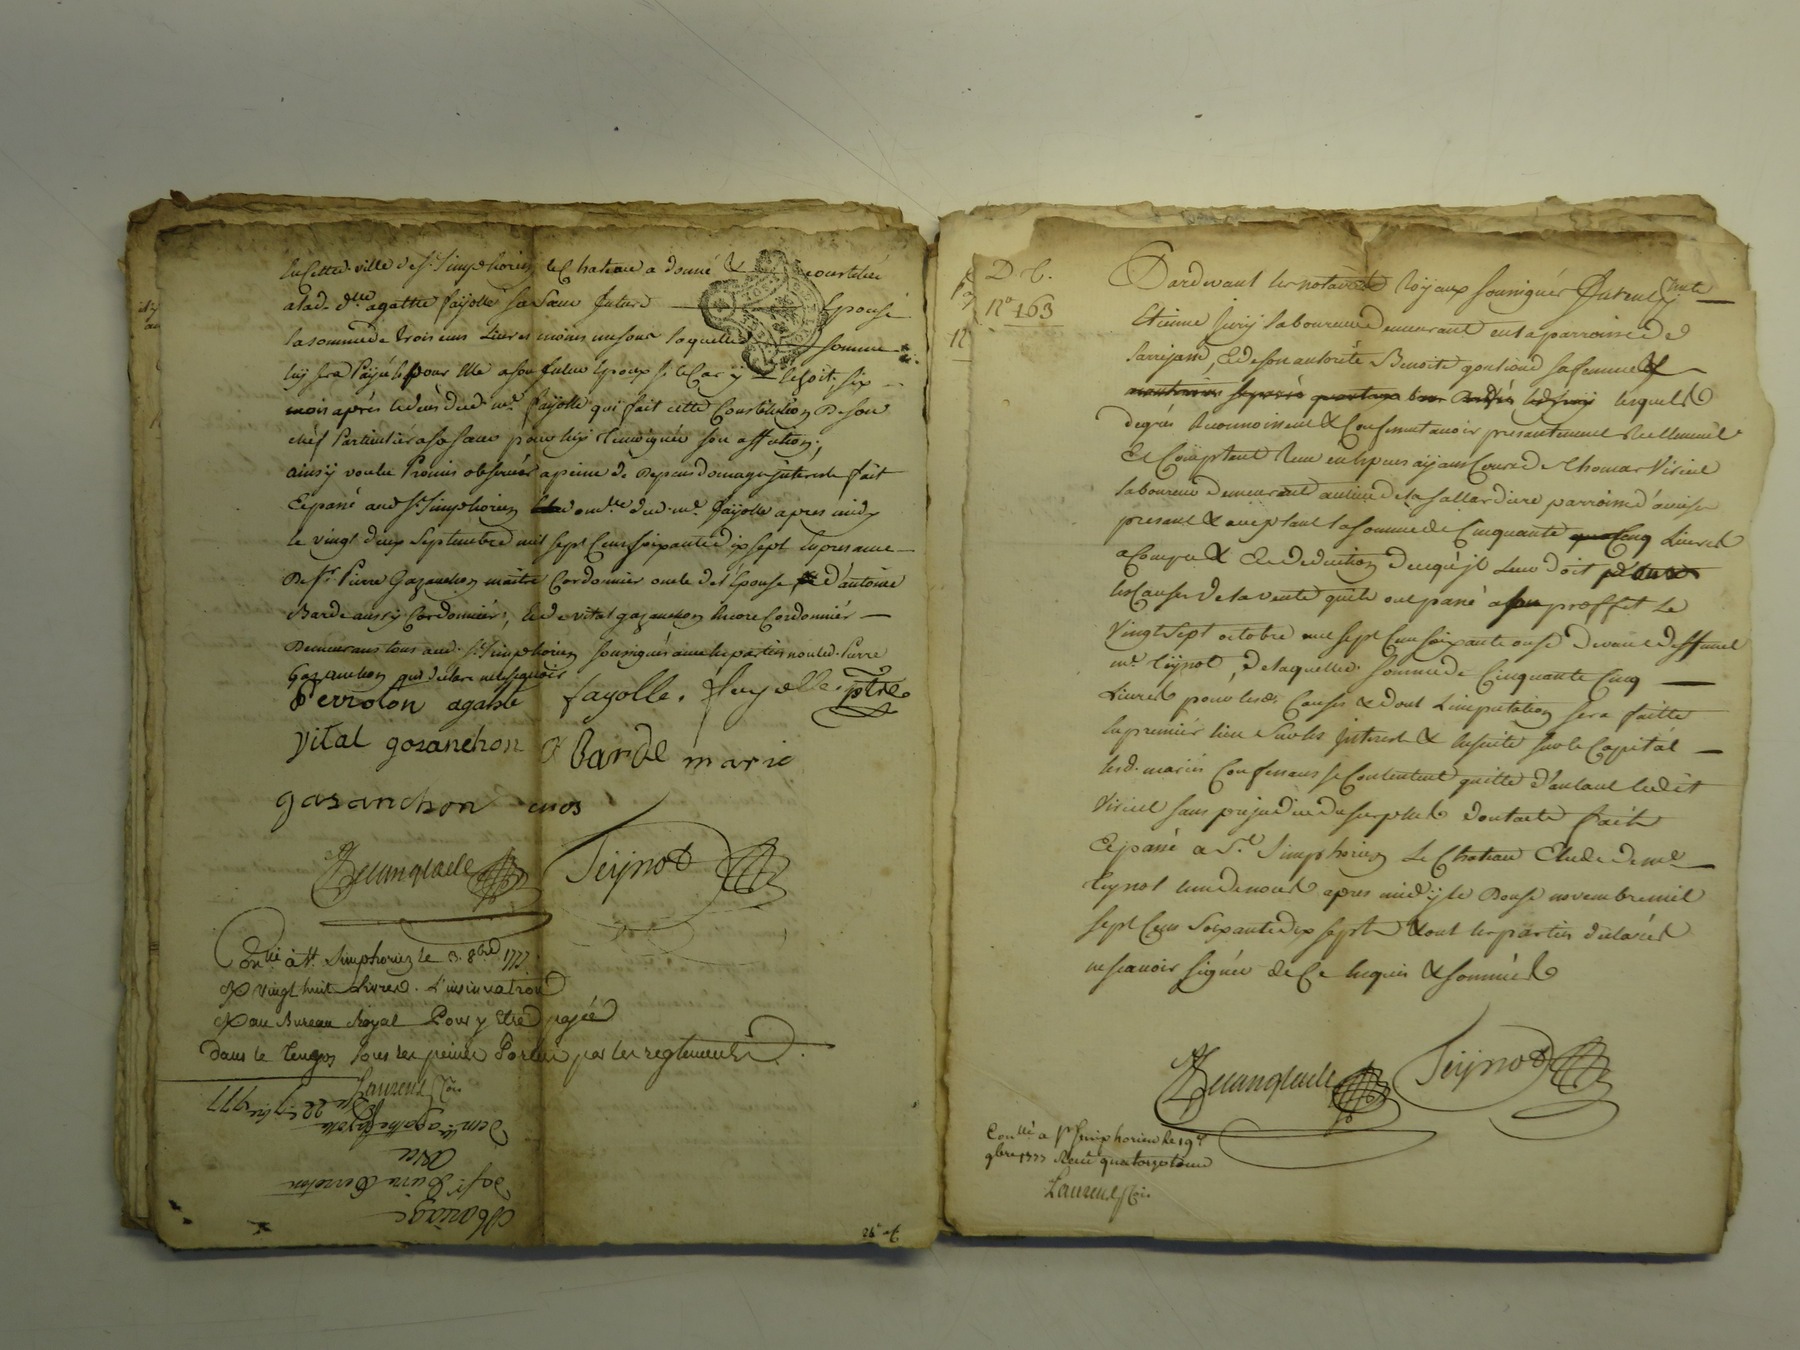 en cette ville de St. Simphorien le Chateau a donné & constitué
a lad. dlle agathe fayolle sa sœur future Epouse
la somme de trois cens livres moins un sou laquelle somme
luy sera Payée pour elle a son futur Epoux
mois après le decès dud. me. fayolle qui fait cette Constitution De son
chef Particulier a sa sœur pour luy temoigner son affection,
ainsy voulu Promis observer a peine de Depens domage interets fait
Et passé aud. St. Simphorien dud. me. fayolle apres midy
le vingt deux Septembre mil sept Cens soixante dix sept En presence
De sr. Pierre Gazanchon maitre Cordonnier oncle de l'Epouse d'antoine
Barde aussy Cordonnier, et de vital gazanchon encore Cordonnier
Demeurans tous aud. St. Simphorien soussignés avec les parties non led. Pierre
Gazanchon qui declare ne le sçavoir
Perroton agathe fayolle. fayolle. ptre
vital gosanchon Barde marie
gasanchon
Teijnot
Conllé à St. Simphorien le 3. 8bre 1777.
vingt huit livres. L'insinuation
au Bureau Royal Pour y etre payée
dans le temps sous les peines Portées par les reglements.
Laurent
22 7bre 1777
demlle agathe fayolle
avec
De sr. Pierre Perroton
Mariage
D. C.
N° 163
Pardevant les notaires Royaux soussignés furent
Etienne laboureur demeurant en la parroisse de
Larrajasse, & de son autorité Benoite sa femme
lesquels
degrés reconnoissent & Confessent avoir presentement reellement
Et Comptant reçu en especes ayans Cours de Thomas Viricel
laboureur demeurant au lieu de la sallardiere parroisse d'aveise
present & acceptant la somme de Cinquante Cinq Livres
a Compte & En Deduction de ce qu'il leur doit
les Causes de la vente qu'ils ont passé a son proffit Le
Vingt sept octobre mil sept Cens soixante onse Devant deffunt
me. Teijnot, de laquelle somme de Cinquante Cinq
Livres pour lesd. Causes & dont L'imputation sera faitte
En premier lieu sur les interets & ensuite sur le Capital
lesd. mariés Confessans se Contentent quitte d'autant ledit
Viricel sans prejudice du surplus dont acte fait
Et passé a St. Simphorien Le Chateau Etude de me.
Teijnot l'un de nous apres midy le Douse novembre mil
sept Cens soixante dix sept & ont les parties declaré
ne scavoir signer de Ce enquis & sommés
Teijnot
Conllé a St. Simphorien le 19e
9bre 1777 Reçu quatorze sous
Laurent